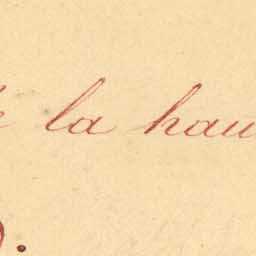 la hau